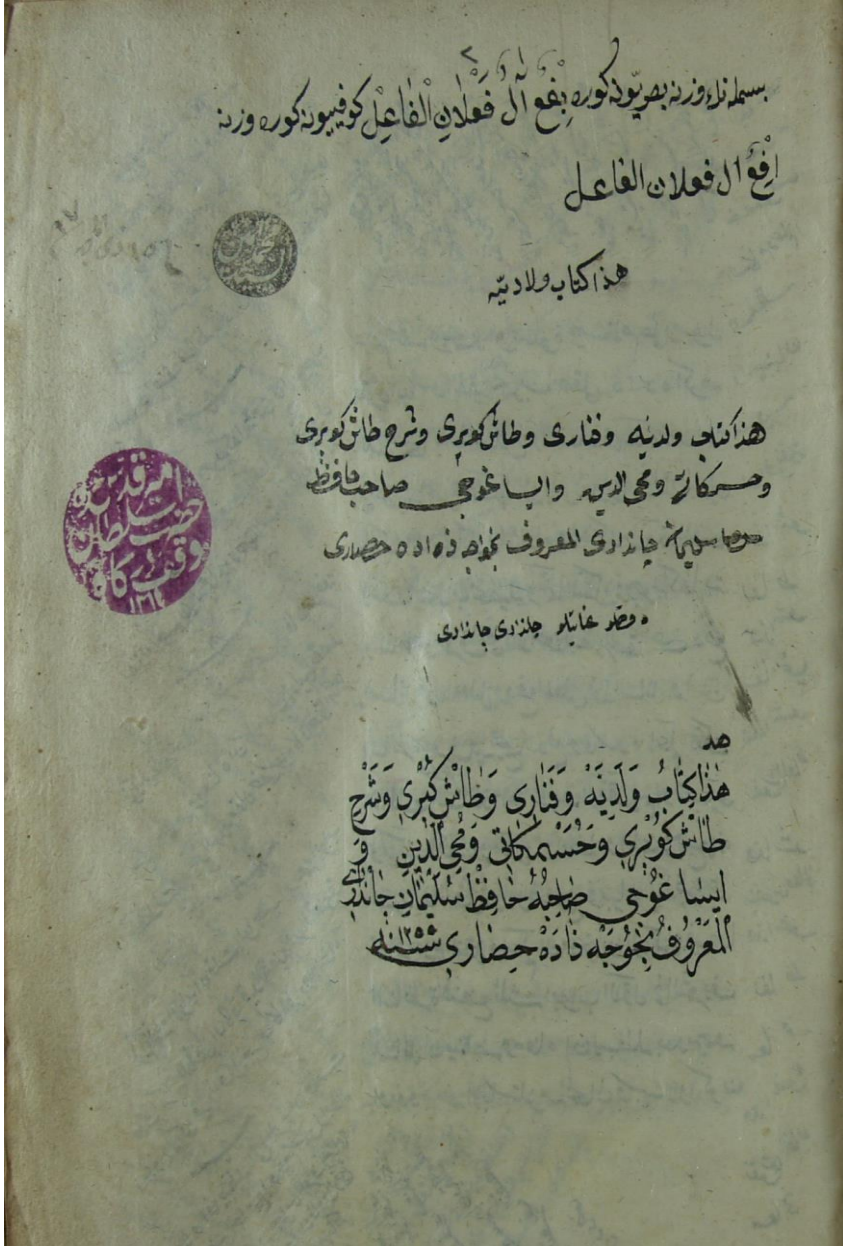 بسمله نك وزنه بصريون كوره بِفْعُ آلْ فَعْلَانِ الْفَاعِلْ كوفيون كوره وزنه
اِفْعُ ال فعلان الفاعل
هذا كتاب ولاديّه
هذا كتاب ولديه وفنارى وطاش كوپرى وشرح طاش كوپرى
وحسمكاتى ومحى الدين وايساغوجى صاحب حافظ
سليمان چاندارى المعروف بخواجه ذاده حصارى
چاندارى چاندارى
هد
هٰذَا كِتَابُ وَلَدِيَّهْ وَفَنَارِى وَطَاشْ كُبْرِى وَشَرْحِ
طَاشْ كُوبْرِى وَحُسَمْكَاتِى وَمُحْيِ الدِّينِ وَ
ايسَا غُوجِى صَاحِبُهُ حَافِظْ سُلَيْمَانِ جَانْدَارِى
الْمَعْرُوفُ بِخَوْجَهْ ذَادَهْ حِصَارِى سنه ١٢٥٥